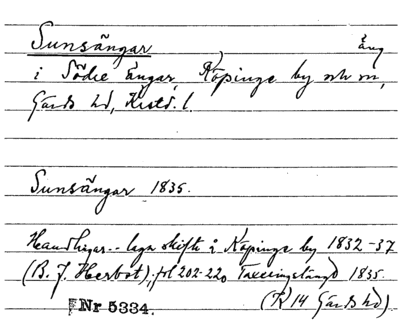 Sunsängar, Äng
i Södre Ängar, Köpinge by och sn,
Gärds hd, Krist. l.
Sunsängar 1835.
Handlingar.. laga skifte i Köpinge by 1832-37
(B. J. Herbst), fol 202-220 Taxeringslängd 1835.
(R 14 Gärds hd)
Nr 5334.